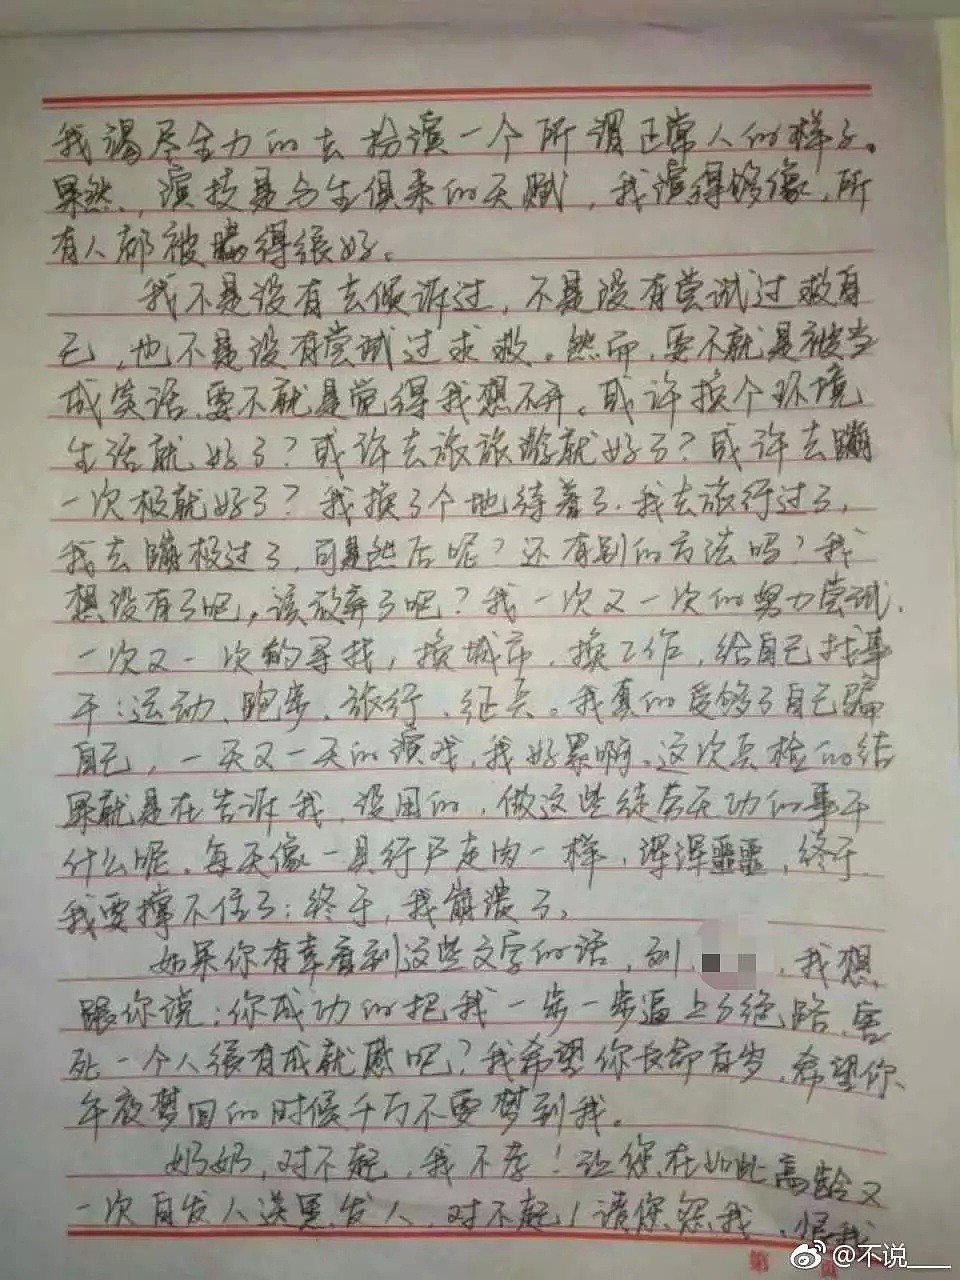 我竭尽全力的去扮演一个所谓正常人的样子。
果然，演技是与生俱来的天赋，我演得够像，所
有人都被瞒得很好。
我不是没有去倾诉过，不是没有尝试过救自
己，也不是没有尝试过求救。然而，要不就是被当
成笑话、要不就是觉得我想不开。或许换个环境
生活就好了？或许去旅旅游就好了？或许去蹦
一次极就好了？我换了个地待着了，我去旅行过了，
我去蹦极过了，可是然后呢？还有别的方法吗？我
想没有了吧，该放弃了吧？我一次又一次的努力尝试，
一次又一次的寻找，换城市、换工作，给自己找事
干：运动、跑步、旅行、征兵。我真的受够了自己骗
自己，一天又一天的演戏，我好累啊。这次兵检的结
果就是在告诉我，没用的，做这些徒劳无功的事干
什么呢，每天像一具行尸走肉一样，浑浑噩噩，终于，
我要撑不住了；终于，我崩溃了。
如果你有幸看到这些文字的话，刘，我想
跟你说：你成功的把我一步一步逼上了绝路，害
死一个人很有成就感吧？我希望你长命百岁，希望你
午夜梦回的时候千万不要梦到我。
奶奶，对不起，我不孝！让您在如此高龄又
一次白发人送黑发人，对不起！请您怨我、恨我
第 页
@不说___